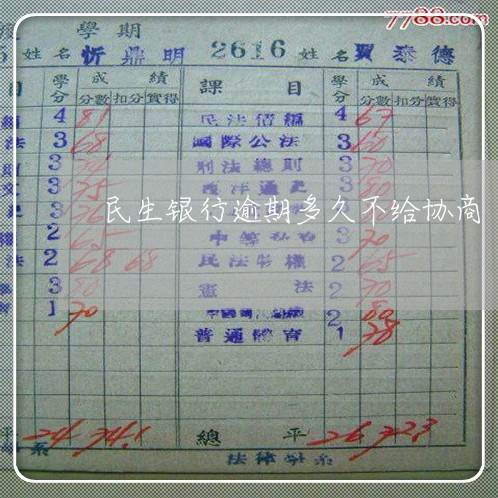 7788.com
學期
姓名 忻鼎明 2616 姓名 賈泰德
目 學分 成績 課目 學分 成績
分數 扣分 實得 分數 扣分 實得
4 81 民法債編 4 67
法 3 68 國際公法 3 60
3 刑法總則 3 70
3 75 西洋通史 3 80
民生银行逾期多久不给协商
2 65 3 70
法 2 68 68 民法物權 2 65
3 80 憲法 2 70
1 70 2 80
普通體育 1 78
平 24 74.1 總平 26 72.3
系 法律學系